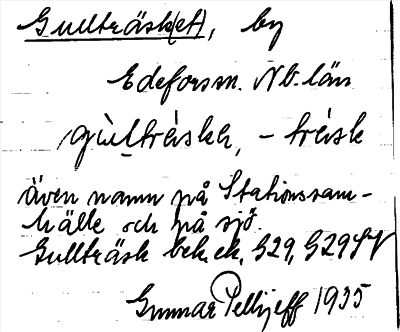 Gullträsk(et), by
Edeforssn. Nb. län
gùl̀tráskk, - trásk
Även namn på Stationssam-
hälle och på sjö.
Gullträsk bek. ek. 929, 929 SV
Gunnar Pellijeff 1935